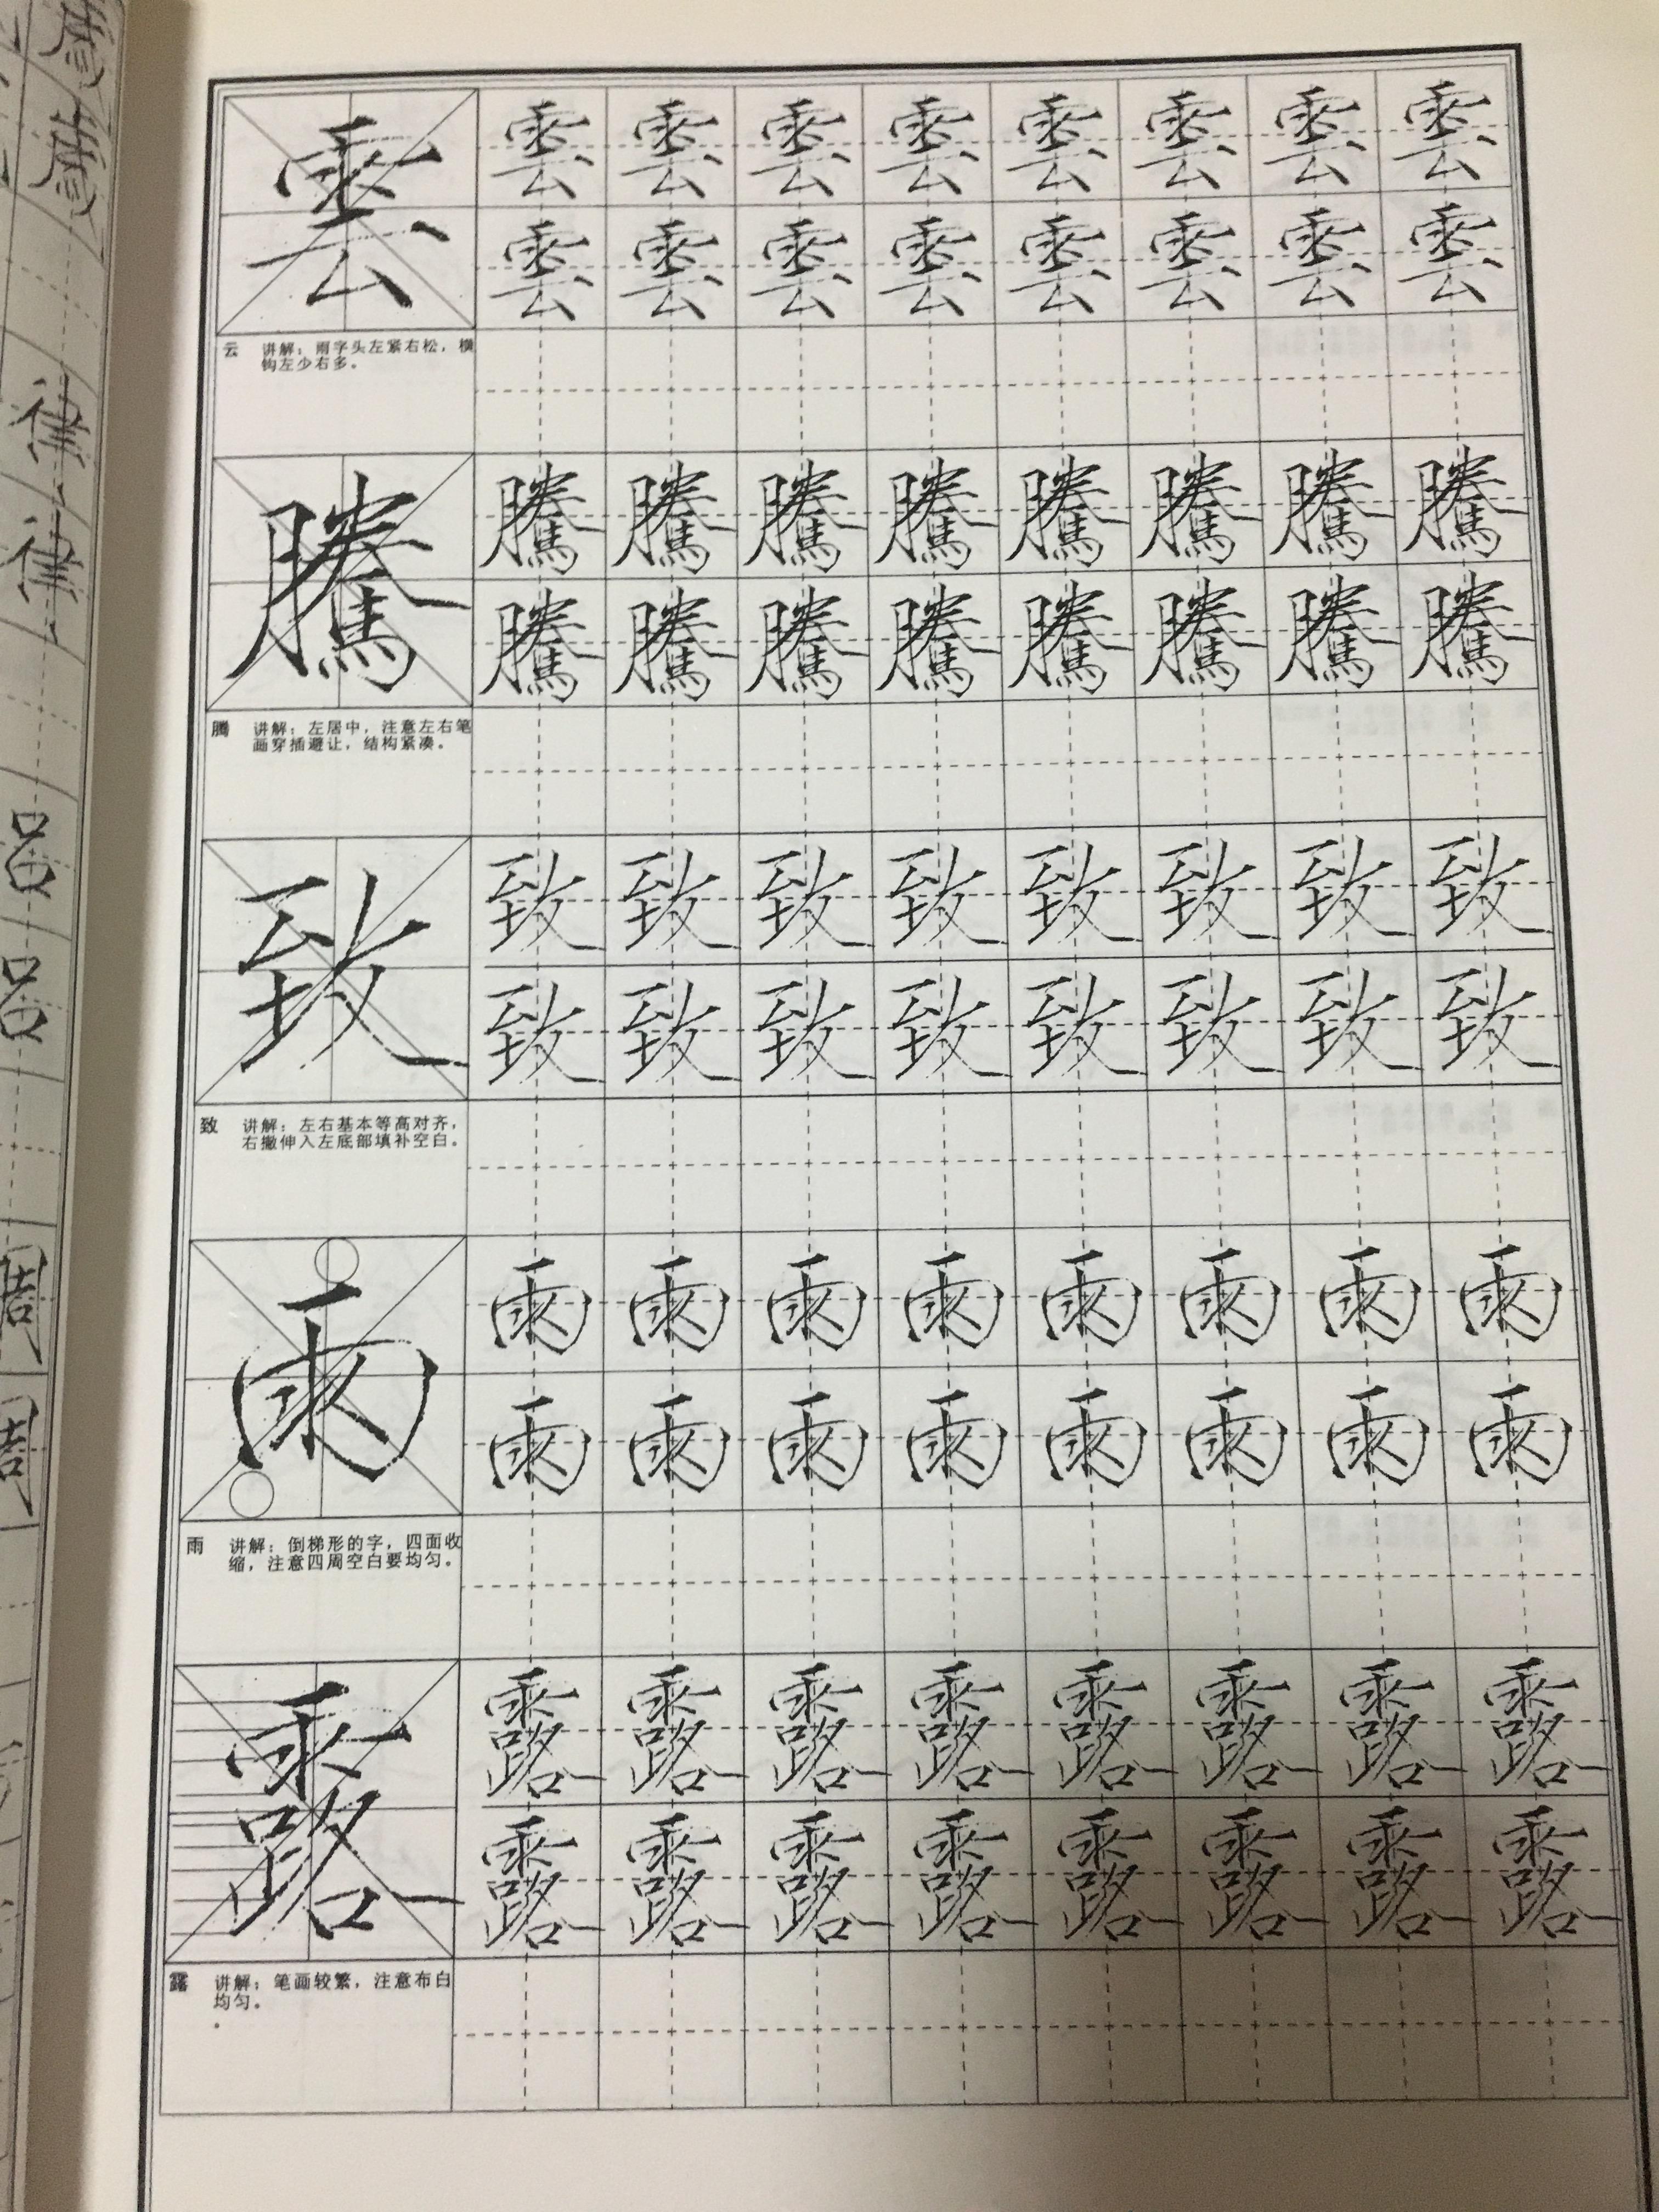 雲 雲 雲 雲 雲 雲 雲 雲 雲
雲 雲 雲 雲 雲 雲 雲 雲
云 讲解：雨字头左紧右松，横
钩左少右多。
騰 騰 騰 騰 騰 騰 騰 騰 騰
騰 騰 騰 騰 騰 騰 騰 騰
腾 讲解：左居中，注意左右笔
画穿插避让，结构紧凑。
致 致 致 致 致 致 致 致 致
致 致 致 致 致 致 致 致
致 讲解：左右基本等高对齐，
右撇伸入左底部填补空白。
雨 雨 雨 雨 雨 雨 雨 雨 雨
雨 雨 雨 雨 雨 雨 雨 雨
雨 讲解：倒梯形的字，四面收
缩，注意四周空白要均匀。
露 露 露 露 露 露 露 露 露
露 露 露 露 露 露 露 露
露 讲解：笔画较繁，注意布白
均匀。
律
律
呂
呂